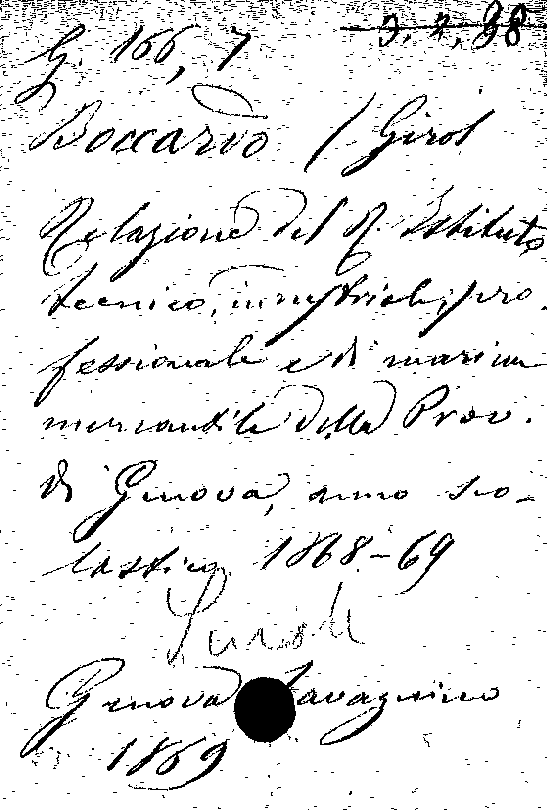 G. 166, 7 3. 2. 38
Boccardo / Girol
Relazione del R. Istituto
tecnico, industriale, pro
fessionale e di marina
mercantile della Prov.
di Genova, anno sco-
lastico 1868-69
Genova Lavagnino
1869